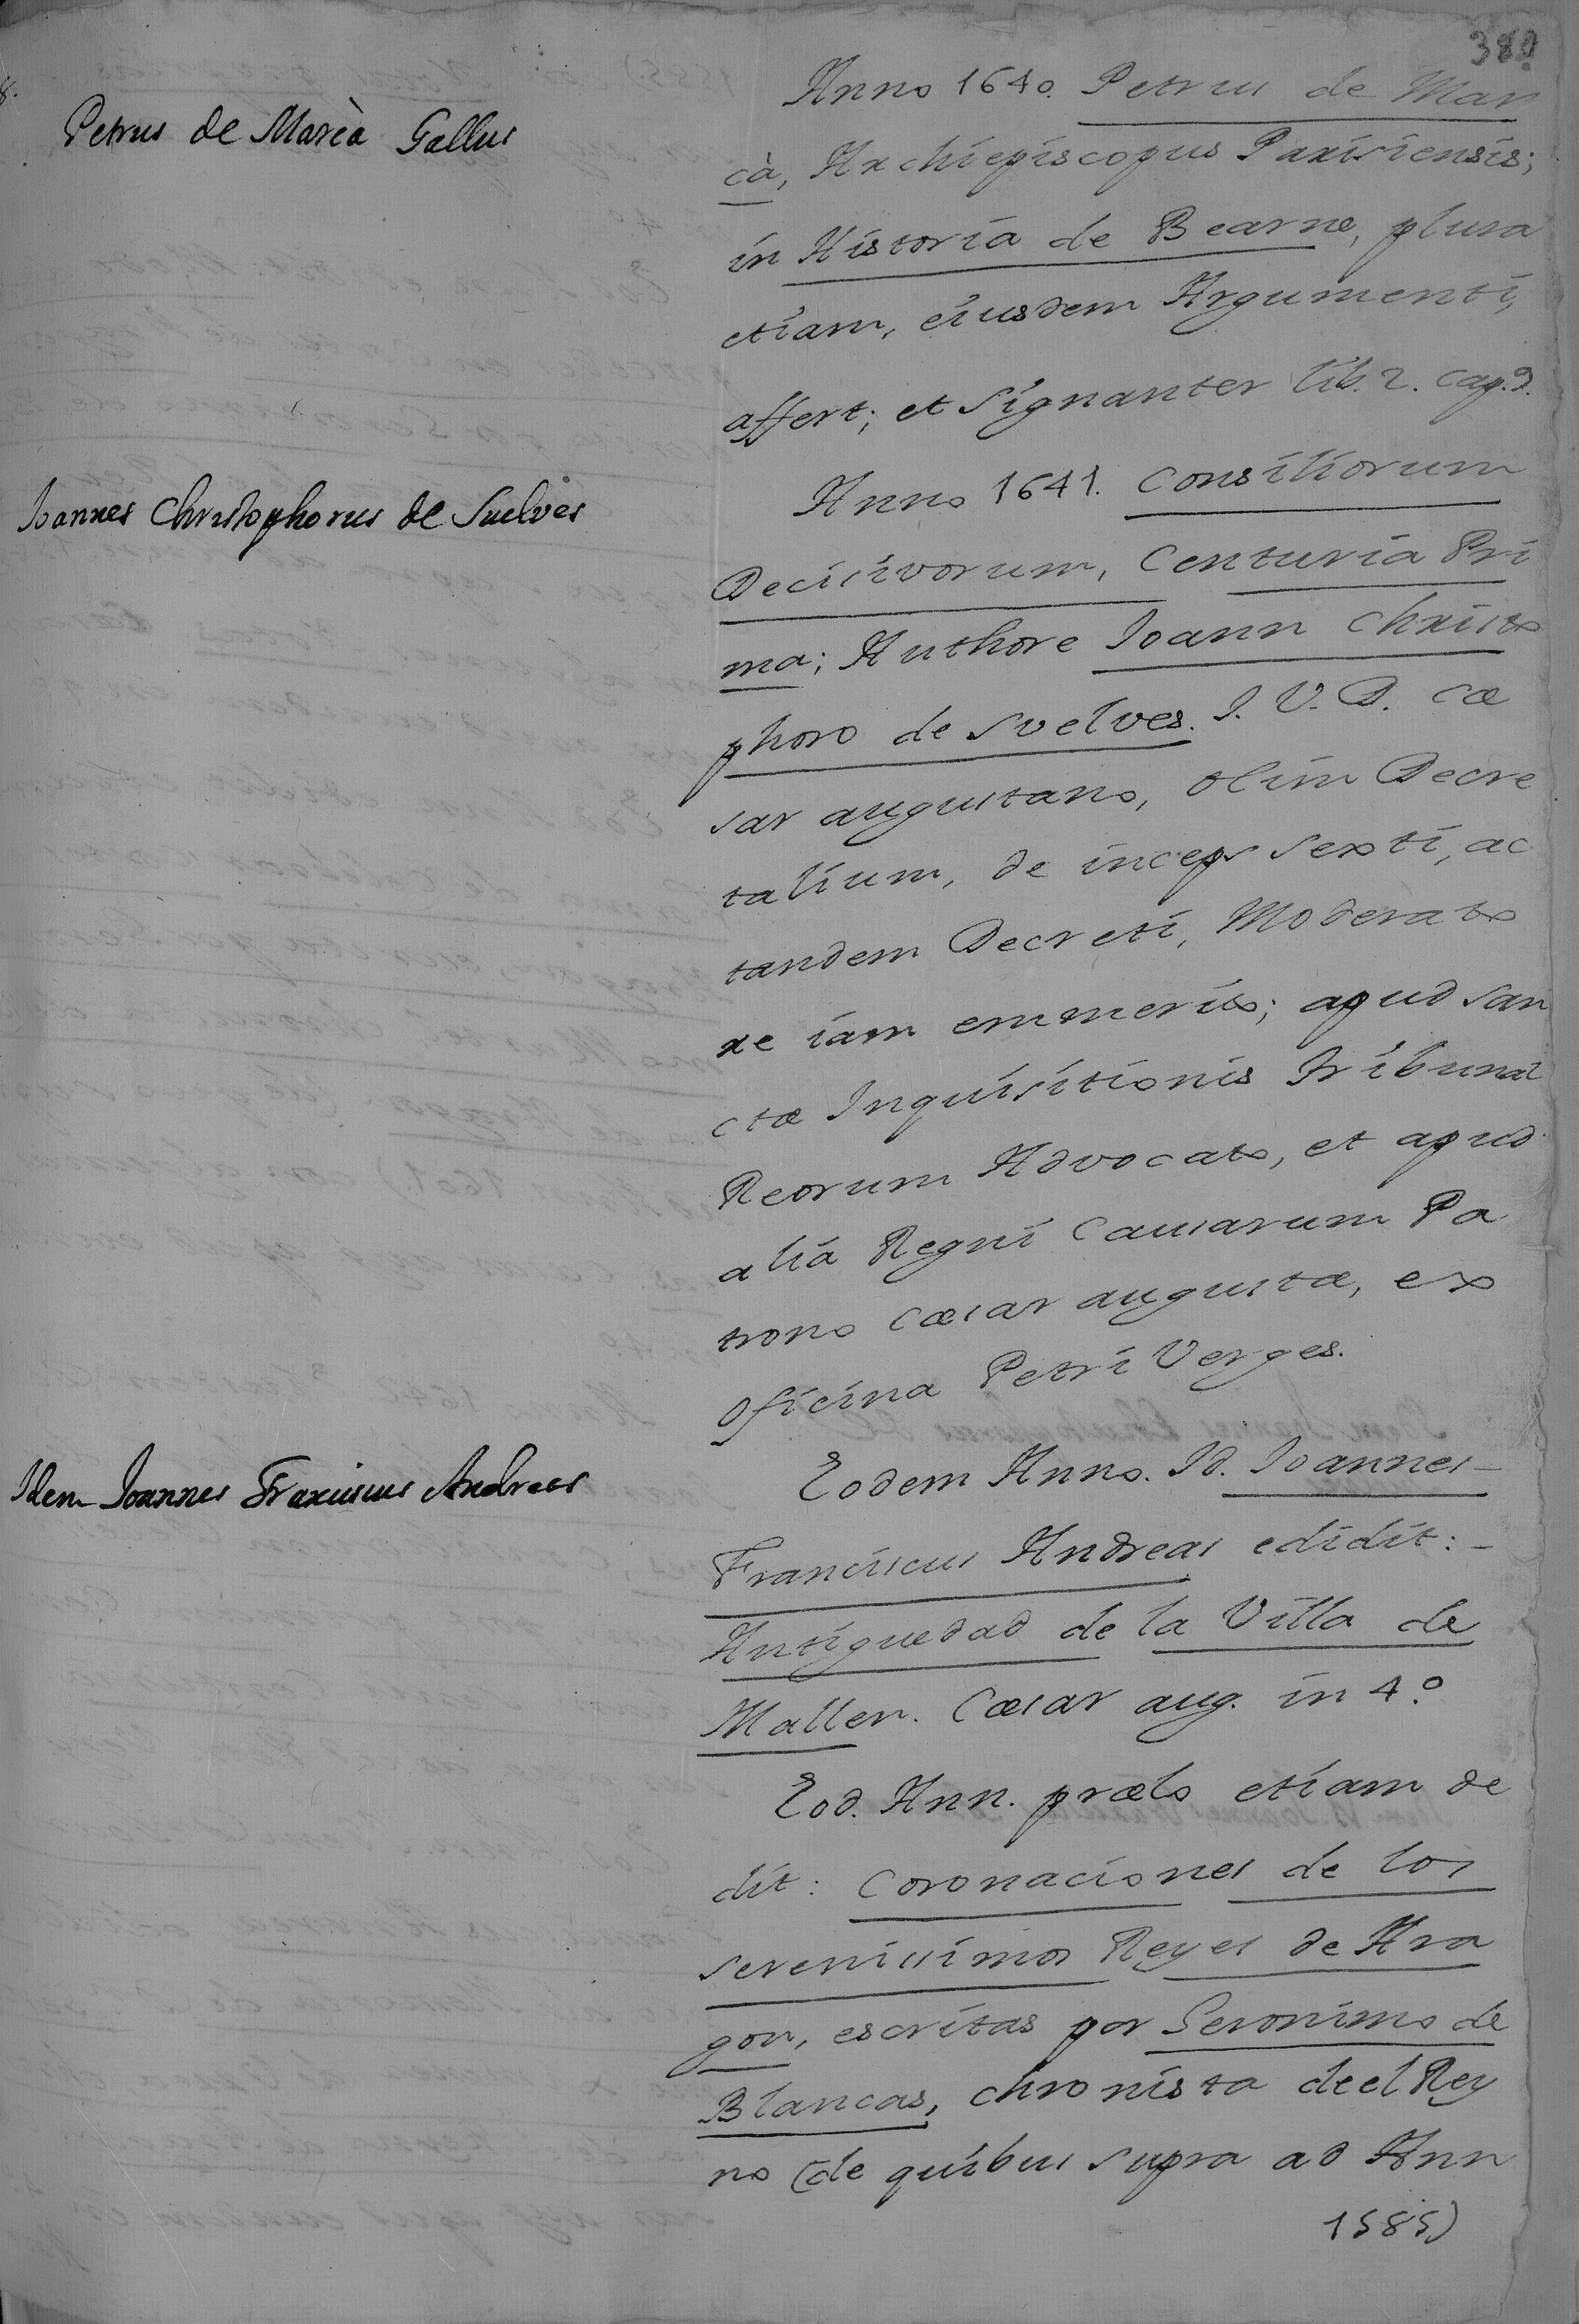 380
Petrus de Marca Gallus
Anno 1640. Petrus de Mar
cà, Archiepiscopus Parisiensis;
in Historia de Bearne, plura
etiam, eiusdem Argumenti,
affert; et signanter lib. 2. cap. 9.
Ioannes Christophorus de Suelves
Anno 1641. Consiliorum
Decisivorum, Centuria Pri
ma; Authore Ioann Christo
phoro de Suelves. I. V. D. Cæ
sar augustano, olim Decre
talium, de inceps sexti, ac
tandem Decreti, Moderato
re iam emmerito; apud san
ctæ Inquisitionis Tribunal
Reorum Advocato, et apud
alia Regni Causarum Pa
trono Cæsar augustæ, ex
oficina Petri Verges.
Idem Ioannes Franciscus Andreas
Eodem Anno. Id. Ioannes
Franciscus Andreas edidit:
Antiguedad de la Villa de
Mallen. Cæsar aug. in 4.º
Eod. Ann. prælo etiam de
dit: Coronaciones de los
serenissimos Reyes de Ara
gon, escritas por Geronimo de
Blancas, chronista de el Rey
no (de quibus supra ad Ann
1585)